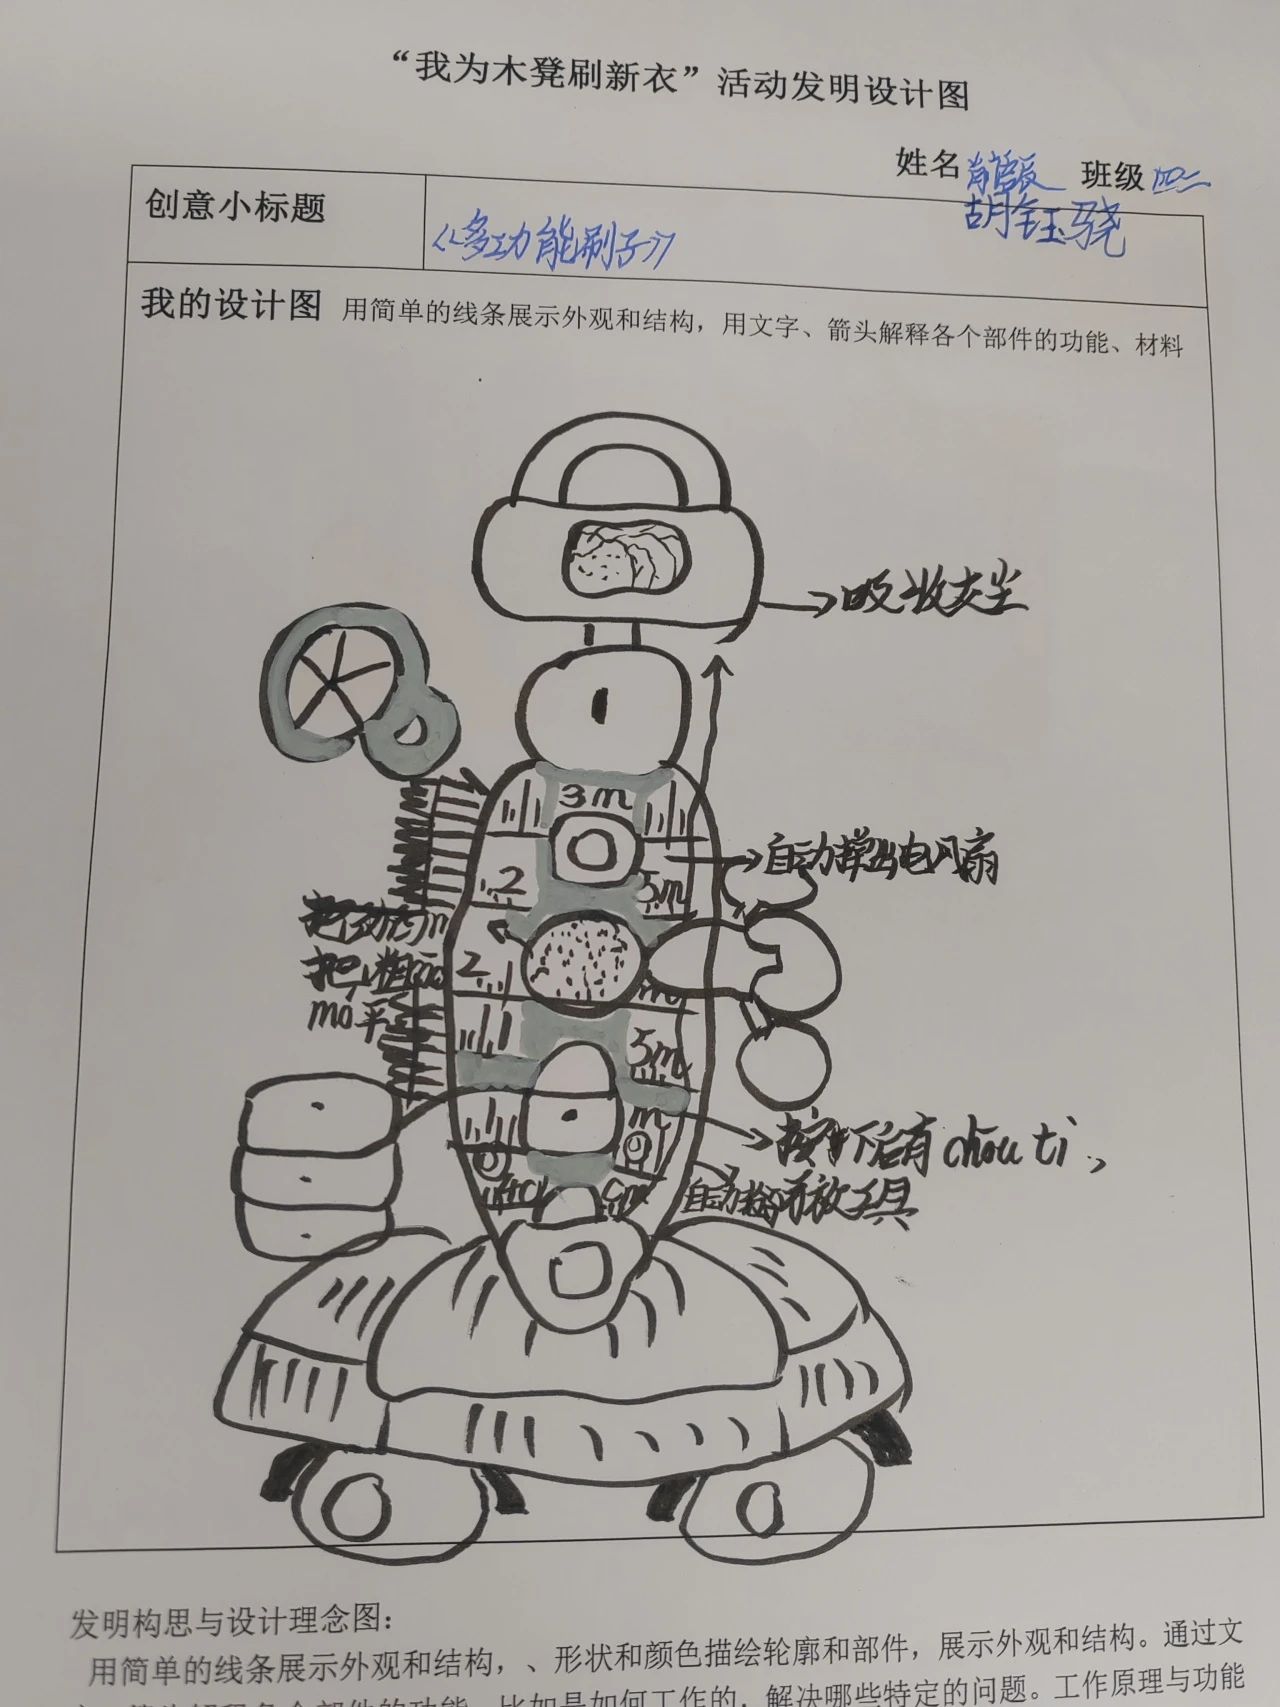 “我为木凳刷新衣”活动发明设计图
姓名 班级 四二
胡钰骁
创意小标题
《多功能刷子》
我的设计图 用简单的线条展示外观和结构，用文字、箭头解释各个部件的功能、材料
吸收灰尘
3m
自动弹出电风扇
2 5m
2 m
把粗
mó平
5m
m
按下后有chōu ti，
自动 放工具
发明构思与设计理念图：
用简单的线条展示外观和结构，、形状和颜色描绘轮廓和部件，展示外观和结构。通过文
比如是如何工作的，解决哪些特定的问题。工作原理与功能